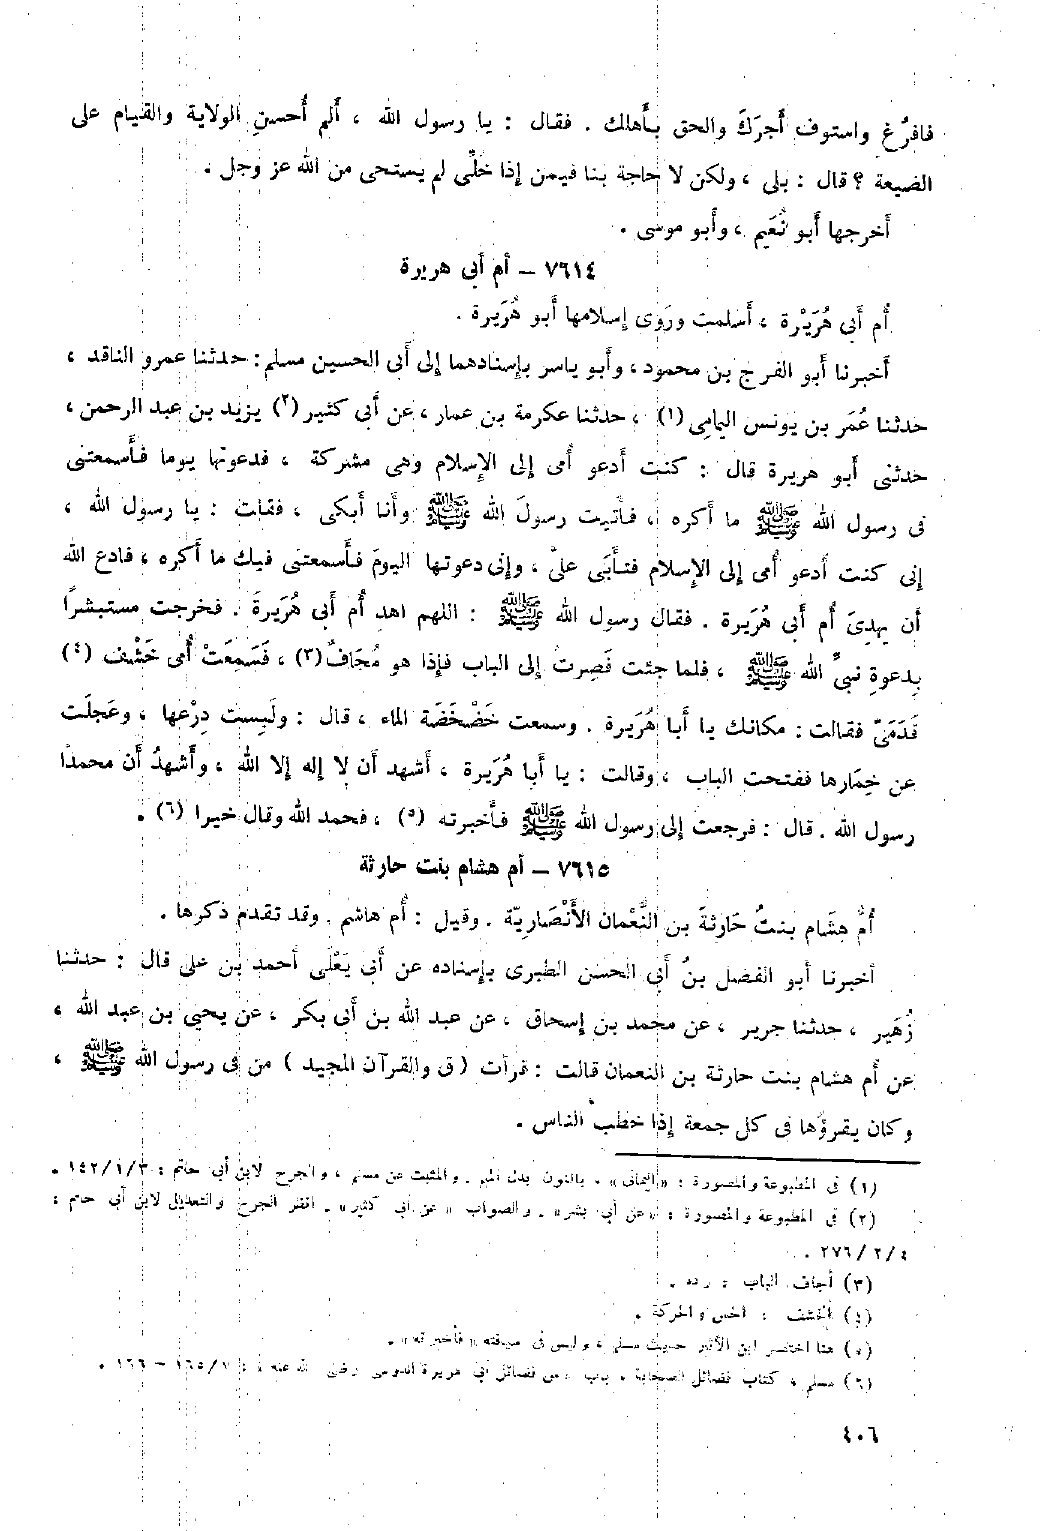 فافرُغ واستوف أَجرَكَ والحق بأَهلك . فقال : يا رسول الله ، أَلم أُحسنِ الولاية والقيام على
الضيعة ؟ قال : بلى ، ولكن لا حاجة بنا فيمن إذا خلِّى لم يستحى من الله عز وجل .
أخرجها أَبو نُعَيم ، وأَبو موسى .
٧٦١٤ – أم أبى هريرة
أُم أَبى هُرَيْرة ، أَسلمت ورَوى إِسلامها أَبو هُرَيرة .
أَخبرنا أَبو الفرج بن محمود ، وأَبو ياسر بإِسنادهما إلى أَبى الحسين مسلم : حدثنا عمرو الناقد ،
حدثنا عُمَر بن يونس اليمامِى (١) ، حدثنا عكرمة بن عمار ، عن أَبى كثير (٢) يزيد بن عبد الرحمن ،
حدثنى أَبو هريرة قال : كنت أَدعو أُمى إلى الإِسلام وهى مشركة ، فدعوتها يوما فأَسمعتنى
فى رسول الله ﷺ ما أَكره ، فأَتيت رسولَ الله ﷺ وأَنا أَبكى ، فقلت : يا رسول الله ،
إِنى كنت أَدعو أُمى إلى الإِسلام فتأَبَى علىّ ، وإِنى دعوتها اليومَ فأَسمعتنى فيك ما أَكره ، فادع الله
أَن يهدِىَ أُم أَبى هُرَيرة . فقال رسول الله ﷺ : اللهم اهدِ أُم أَبى هُرَيرةَ . فخرجت مستبشراً
بِدعوةِ نبىِّ الله ﷺ ، فلما جئت فَصِرتُ إلى الباب فإِذا هو مُجَافٌ (٣) ، فَسَمِعَتْ أُمى خَشْفَ (٤)
قَدَمَىّ فقالت : مكانك يا أَبا هُرَيرة . وسمعت خَضْخَضَة الماء ، قال : ولَبِست دِرْعها ، وعَجِلَت
عن خِمَارها ففتحت الباب ، وقالت : يا أَبا هُرَيرة ، أَشهد أَن لا إله إلا الله ، وأَشهدُ أَن محمدًا
رسول الله . قال : فرجعت إلى رسول الله ﷺ فأَخبرته (٥) ، فحمد الله وقال خيرا (٦) .
٧٦١٥ – أم هشام بنت حارثة
أُمُّ هِشَام بنتُ حَارثةَ بن النُّعْمان الأَنْصَاريّة . وقيل : أُم هاشم . وقد تقدم ذكرها .
أخبرنا أبو الفضل بنُ أَبى الحسن الطبرى بإِسناده عن أَبى يَعْلَى أحمد بن على قال : حدثنا
زُهَير ، حدثنا جرير ، عن محمد بن إِسحاق ، عن عبد الله بن أَبى بكر ، عن يحيى بن عبد الله ،
عن أُم هشام بنت حارثة بن النعمان قالت : قرأت ( ق والقرآن المجيد ) من فى رسول الله ﷺ ،
وكان يقرؤها فى كل جمعة إذا خطب الناس .
(١) فى المطبوعة والمصورة : « اليمانى » ، بالنون بدل الميم . والمثبت عن مسلم ، والجرح لابن أبى حاتم : ١٤٢/١/٣ .
(٢) فى المطبوعة والمصورة : « عن أبى بشر » . والصواب « عن أبى كثير » . انظر الجرح والتعديل لابن أبى حاتم :
٢٧٦/٢/٤ .
(٣) أجاف الباب : رده .
(٤) الخشف : الحس والحركة .
(٥) هنا اختصر ابن الأثير حديث مسلم ، وليس فى سياقته « فأخبرته » .
(٦) مسلم ، كتاب فضائل الصحابة ، باب « من فضائل أبى هريرة الدوسى رضى الله عنه » : ١٦٥/٧ – ١٦٦ .
٤٠٦